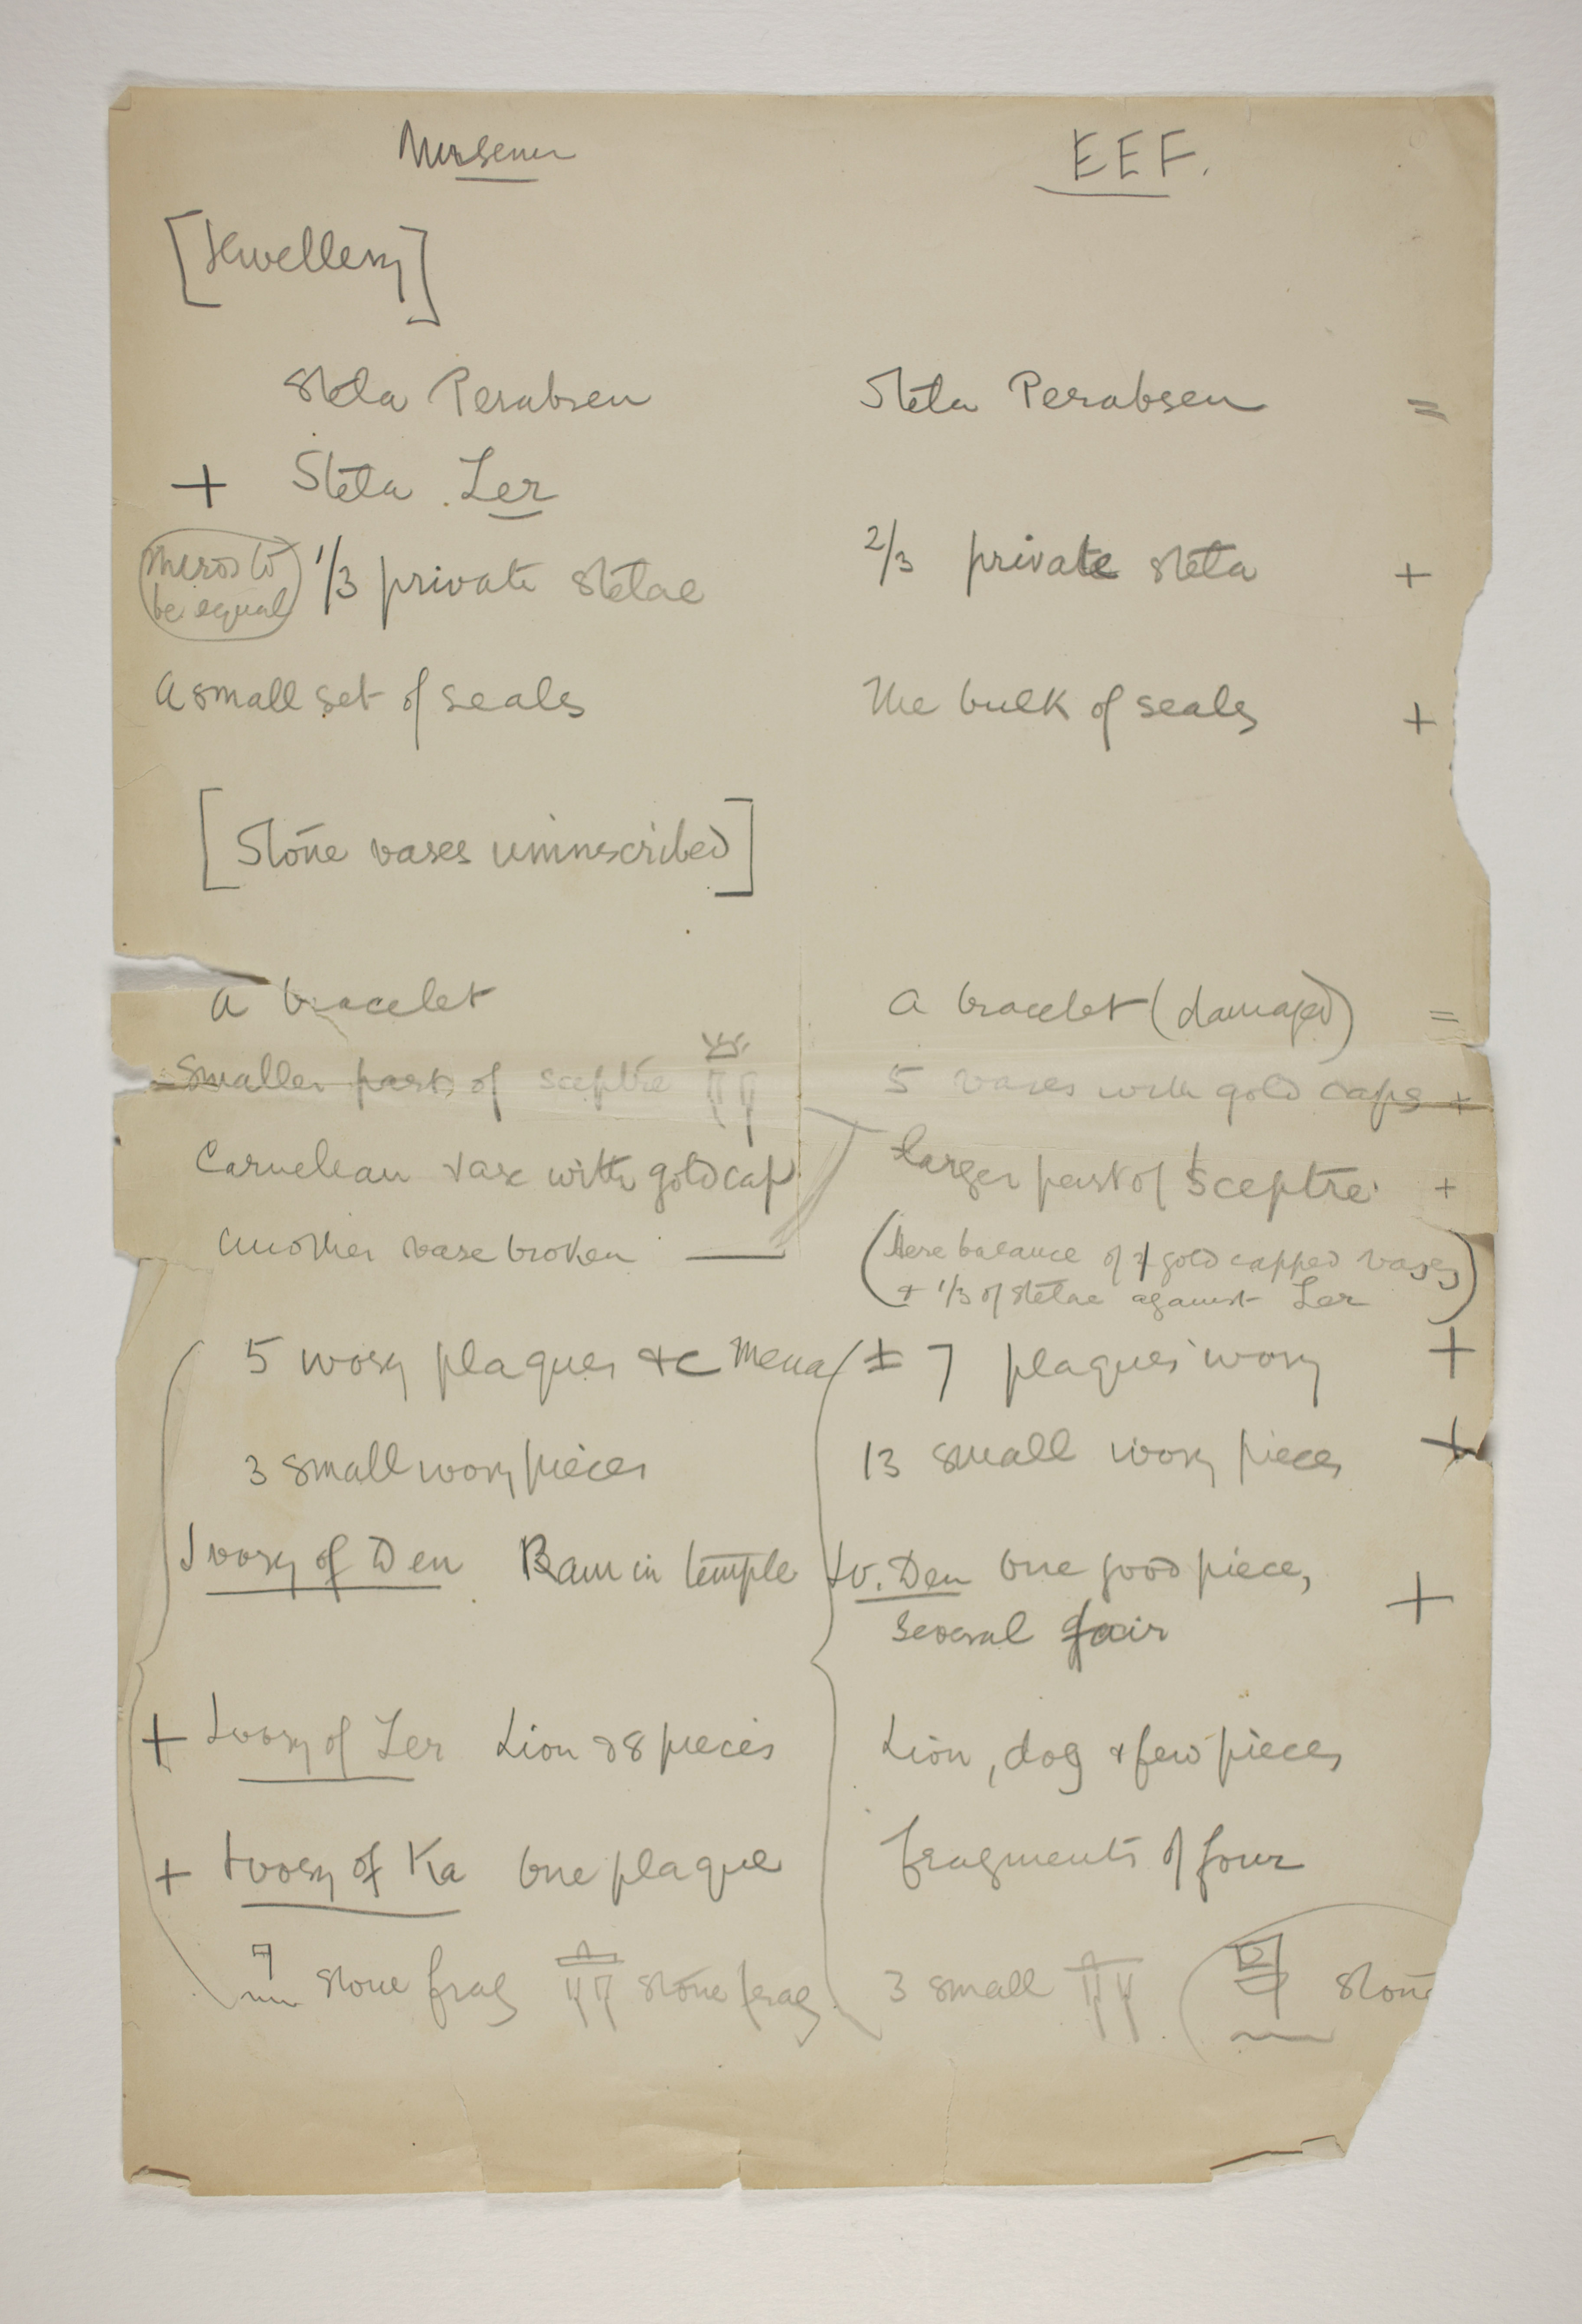 Museum EEF.
[Jewellery]
Stela Perabsen Stela Perabsen =
+ Stela Zer
1/3 private stelae 2/3 private stela +
be equal
A small set of seals The bulk of seals +
[Stone vases uninscribed]
A bracelet A bracelet (damaged) =
Smaller part of sceptre 5 vases with gold caps +
Carnelian vase with gold cap larger part of Sceptre +
Another vase broken — (Here balance of 4 gold capped vases
+ 1/3 of stelae against Zer)
5 ivory plaques &c Mena ± 7 plaques ivory +
3 small ivory pieces 13 small ivory pieces +
Ivory of Den Ram in temple Iv. Den One good piece, +
several fair
+ Ivory of Zer Lion & 8 pieces Lion, dog & few pieces
+ Ivory of Ka One plaque fragments of four
stone frag stone frag 3 small ( Stone